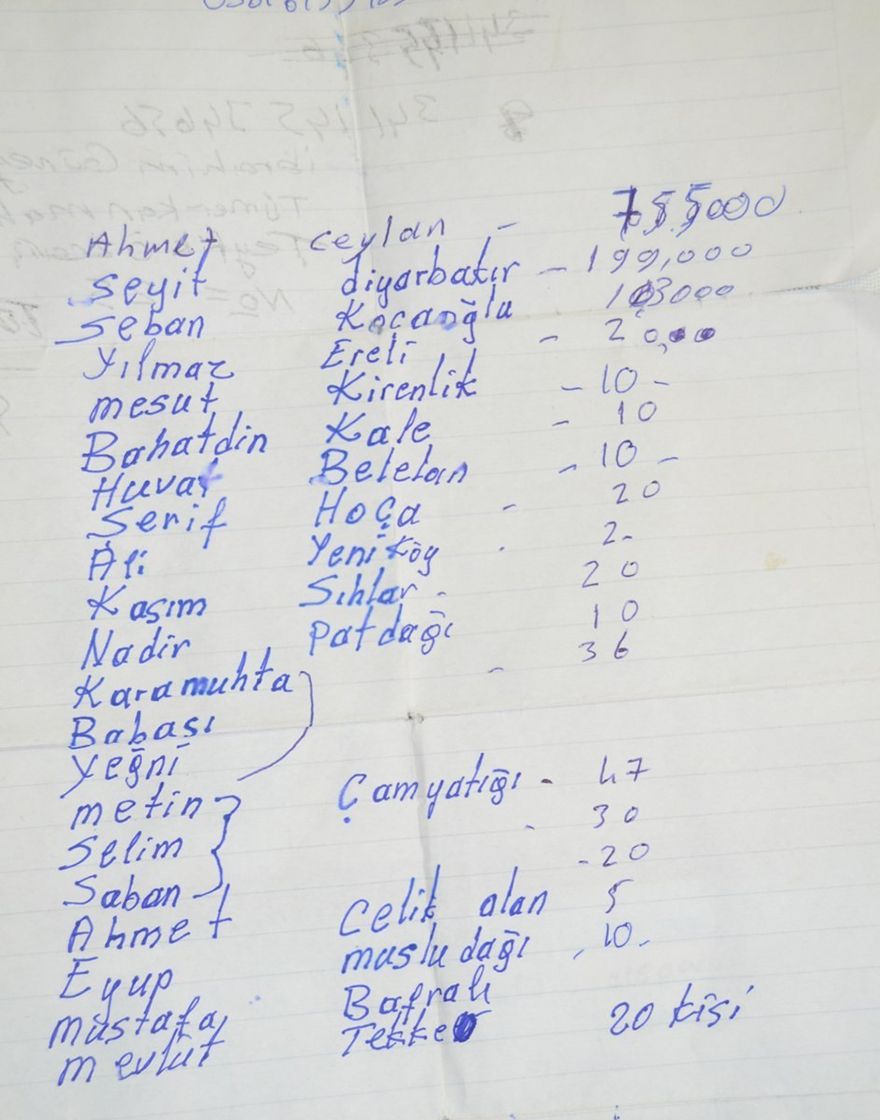 Ahmet ceylan -
Seyit diyarbakır - 199,000
Seban Kocaoğlu 103000
Yılmaz Ereli - 20,000
mesut Kirenlik - 10 -
Bahatdin Kale - 10
Huvat Belelan - 10 -
Serif Hoça - 20
Ali Yeniköy . 2-
Kasım Sıhlar - 20
Nadir Patdağı 10
Karamuhta - 36
Babası
Yeğni
metin Çamyatığı - 47
Selim - 30
Saban - 20
Ahmet Celik alan 5
Eyup musludağı - 10 -
Mustafa Bafralı
mevlut Tekke 20 kişi